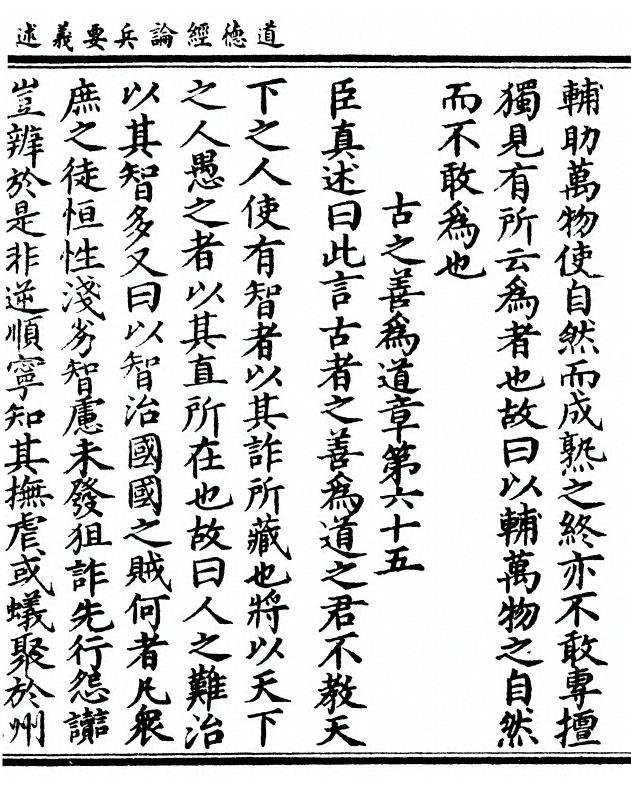 道德經論兵要義述
輔助萬物使自然而成熟之終亦不敢專擅
獨見有所云為者也故曰以輔萬物之自然
而不敢為也
古之善為道章第六十五
臣真述曰此言古者之善為道之君不教天
下之人使有智者以其詐所藏也將以天下
之人愚之者以其直所在也故曰人之難治
以其智多又曰以智治國國之賊何者凡衆
庶之徒恒性淺劣智慮未發狙詐先行怨讟
豈辨於是非逆順寧知其撫虐或蟻聚於州